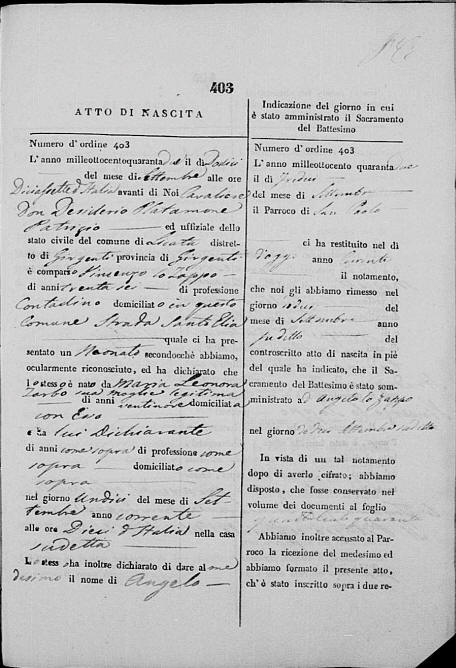 403
ATTO DI NASCITA
Numero d'ordine 403
L'anno milleottocentoquaranta due il dì Dodici
del mese di Settembre alle ore
Diciassette d'Italia avanti di Noi Cavaliere
Don Desiderio Platamone
Patrizio ed uffiziale dello
stato civile del comune di Licata distret-
to di Girgenti provincia di Girgenti
è comparso Vincenzo lo Zappo
di anni trenta sei di professione
Contadino domiciliato in questo
Comune Strada Sant Elia
quale ci ha pre-
sentato un Neonato secondocchè abbiamo,
ocularmente riconosciuto, ed ha dichiarato che
lo stesso è nato da Maria Leonora
Zarbo sua moglie legittima
di anni ventinove domiciliata
con Esso
e da lui Dichiarante
di anni come sopra di professione come
sopra domiciliato come
sopra
nel giorno Undici del mese di Set-
tembre anno corrente
alle ore Dieci d'Italia nella casa
sudetta
Lo stesso ha inoltre dichiarato di dare al me
desimo il nome di Angelo
Indicazione del giorno in cui
è stato amministrato il Sacramento
del Battesimo
Numero d'ordine 403
L'anno milleottocento quaranta due
il dì
del mese di Settembre
il Parroco di San Paolo
ci ha restituito nel dì
d'oggi anno
il notamento,
che noi gli abbiamo rimesso nel
giorno dodici del
mese di Settembre anno
sudetto del
controscritto atto di nascita in piè
del quale ha indicato, che il Sa-
cramento del Battesimo è stato som-
ministrato ad Angelo lo Zappo
nel giorno dodici Settembre sudetto
In vista di un tal notamento
dopo di averlo cifrato; abbiamo
disposto, che fosse conservato nel
volume dei documenti al foglio
Abbiamo inoltre accusato al Par-
roco la ricezione del medesimo ed
abbiamo formato il presente atto,
ch'è stato inscritto sopra i due re-